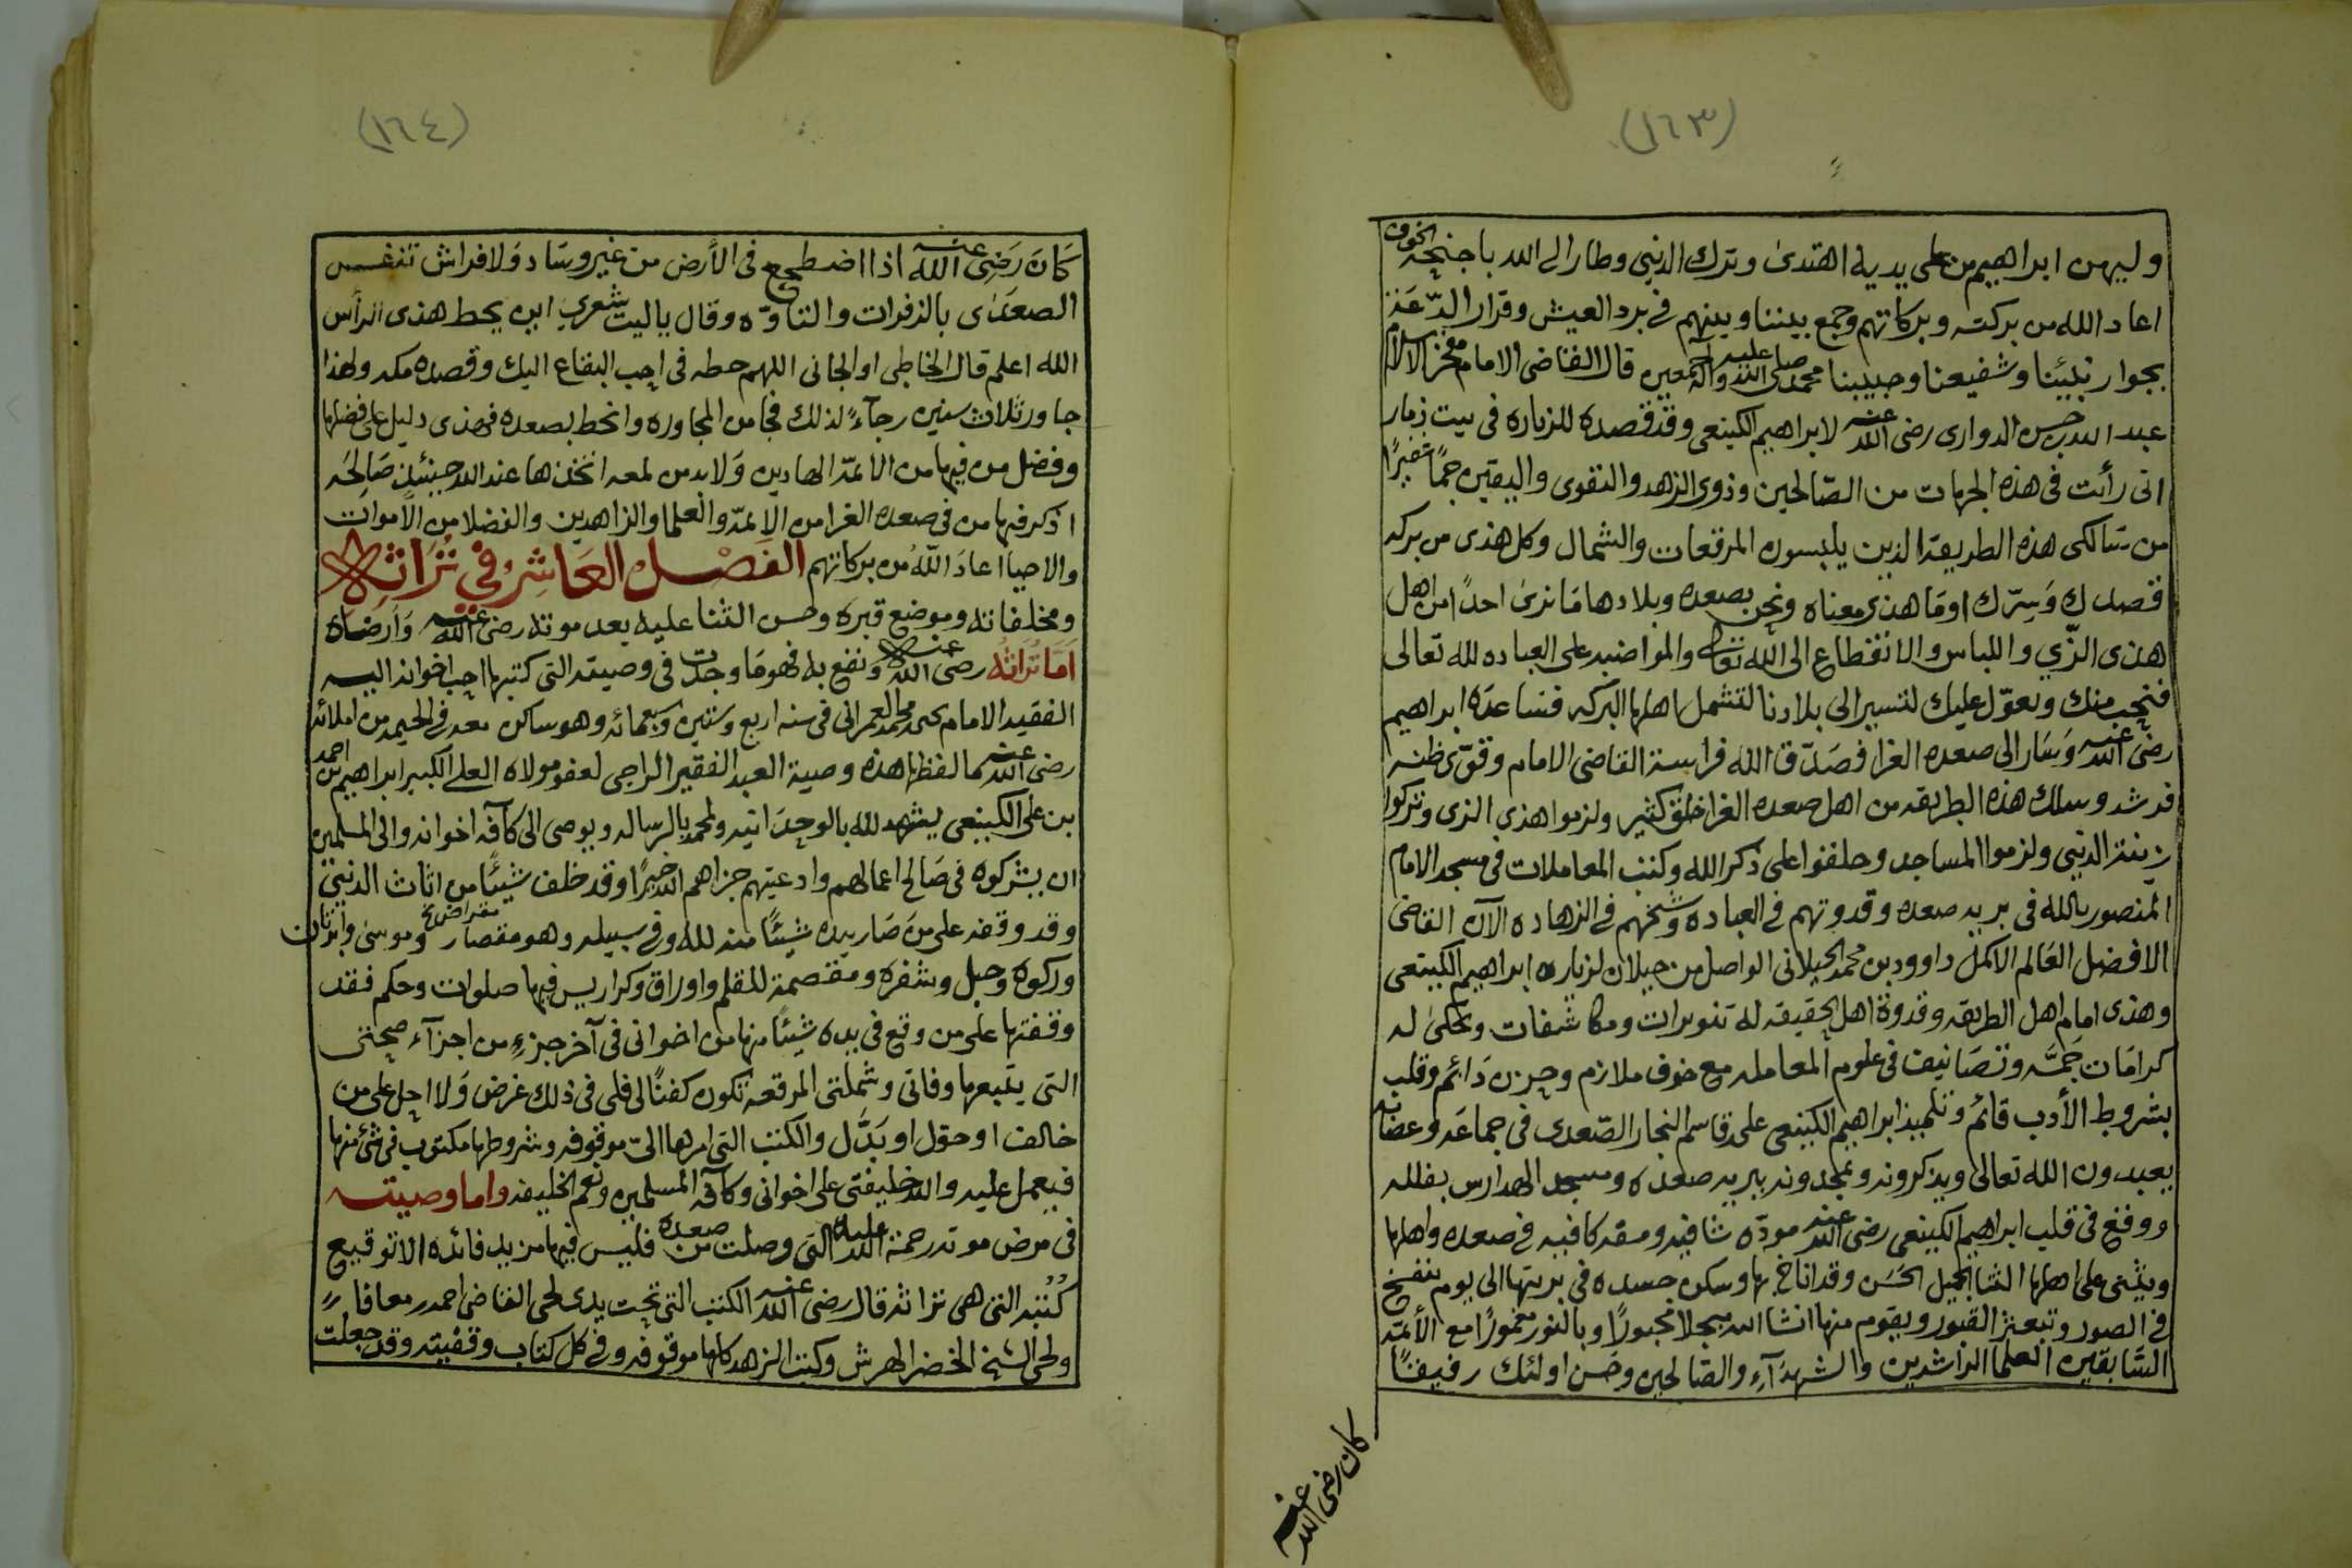 (١٦٣)
وليهن ابراهيم من على يديه اهتدى وترك الدنيى وطار الى الله باجنحة الخوف
اعاد الله من بركته وبركاتهم وجمع بيننا وبينهم في برد العيش وقرار الدّعَة
بجوار نبيئنا وشفيعنا وحبيبنا محمد صلى الله عليه وآله اجمعين قال القاضى الامام مفخر الاسلام
عبد الله بن حسن الدوارى رضى الله عنه لابراهيم الكينعى وقد قصده للزياره فى بيت ذمار
انى رأيت فى هذه الجهات من الصّالحين وذوى الزهد والتقوى واليقين جمًّا غفيرًا
من سَالكى هذه الطريقة الذين يلبسون المرقعات والشمال وكل هذى من بركة
قصدك وَسِرّك اومَا هذى معناه ونحن بصعده وبلادها مَا نرى احدًا من اهل
هذى الزّي واللباس والانقطاع الى الله تعالى والمواضبه على العباده لله تعالى
فنحب منك ونعوّل عليك لتسير الى بلادنا لتشمل اهلها البركه فساعدَه ابراهيم
رضى الله عنه وَسَار الى صعده الغرا فصَدّق الله فراسة القاضى الامام وقوّى ظنه
فرشد وسلك هذه الطريقه من اهل صعده الغرا خلق كثير ولزموا هذى الزى وتركوا
زينة الدنيى ولزموا المساجد وحلقوا على ذكر الله وكتب المعاملات فى مسجد الامام
المنصور بالله فى بريه صعده وقدوتهم في العباده وشيخهم في الزهاده الآن القاضى
الافضل العَالم الاكمل داوود بن محمد الجيلانى الواصل من جيلان لزياره ابراهيم الكينعى
وهذى امام اهل الطريقه وقدوة اهل الحقيقه له تنويرات ومكاشفات وتحكى له
كرامَات جَمَّه وتصَانيف فى علوم المعامله مع خوف ملازم وحزن دَائم وقلب
بشروط الأدب قائم وتلميذ ابراهيم الكينعى على قاسم النجار الصّعدى فى جماعَة وعصَابه
يعبدون الله تعالى ويذكرونه ويمجدونه ببريه صعده ومسجد الهدارس بفلله
ووقع فى قلب ابراهيم الكينعى رضى الله عنه مودّه شافيه ومقه كافيه في صعده واهلها
ويثنى على اهلها الثنا الجميل الحَسَن وقد اناخ بها وسكن جسده فى بريتها الى يوم ينفخ
في الصور وتبعثر القبور ويقوم منها انشا الله مبجلا محبورًا وبالنور مغمورًا مع الأئمة
السَّابقين العلما الراشدين والشهدآءِ والصَالحين وحَسن اولئك رفيقًا
كان رضى الله عنه
(١٦٤)
كَانَ رَضِى الله عنه اذا اضطجع فى الأرض من غير وسَاد وَلا فراش تنفس
الصعدَى بالزفرات والتاوّه وقال ياليت شعري اين يحط هذى الرأس
الله اعلم قال الخاطى او الجانى اللهم حطه فى احب البقاع اليك وقصده مكه ولهذا
جاور ثلاث سنين رجآءً لذلك فجا من المجاوره وانحط بصعده فهذى دليل على فضلها
وفضل من فيها من الائمة الهادين وَلابد من لمعه اتخذها عند الله حينئذ صَالحَه
اذكر فيها من فى صعده الغرا من الائمّة والعلما والزاهدين والفضلا من الأموات
والاحيا اعادَ اللهُ من بركاتهم الفَصْـل العَاشِر في تُرَاثه
ومخلفاته وموضع قبره وحسن الثنا عليه بعد موته رضى الله عنه وَأرضاه
اَمَا تُرَاثُه رضى الله عنه وَنفع به فهو مَا وجدت فى وصيته التى كتبها احب اخوانه اليه
الفقيه الامام يحيى بن محمد العمرانى فى سنه اربع وستين وسبعمائه وهو ساكن معه في الحيمه من املائه
رضى الله عنه ما لفظها هذه وصية العبد الفقير الراجى لعفو مولاه العلي الكبير ابراهيم بن احمد
بن على الكينعى يشهد لله بالوحدَانيه ولمحمد بالرساله ويوصى الى كَآفه اخوانه والى المسلمين
ان يشركوه فى صَالح اعمالهم وادعيتهم جزاهم الله خيرًا وقد خلف شيئًا من اثاث الدنيى
وقد وقفه على من صَار بيده شيئًا منه لله وفي سبيله وهو مقصار مقراض نخ وموسى وابرتان
وركوه وحبل وشفره ومقصمة للقلم واوراق وكراريس فيها صلوات وحكم فقد
وقفتها على من وقع فى يده شيئًا منها من اخوانى فى آخر جزءٍ من اجزآء صحتى
التى يتبعها وفاتى وشملتى المرقعه تكون كفنًا لى فلى فى ذلك غرض وَلا احل على من
خالف او حوّل او بَدَّل والكتب التى امرها الىّ موقوفه وشروطها مكتوب فى شئ منها
فيعمل عليه والله خليفتى على اخوانى وكآفه المسلمين ونعم الخليفه واما وصيته
فى مرض موته رحمة الله عليه التى وصلت من صعده فليس فيها من يد فائده الا توقيع
كُتُبه التى هى تراثه قال رضى الله عنه الكتب التى تحت يدى لحى القاضى احمد معافا
ولحى الشيخ الخضر الهرش وكتب الزهد كلها موقوفه وفي كل كتاب وقفيته وقد جعلت